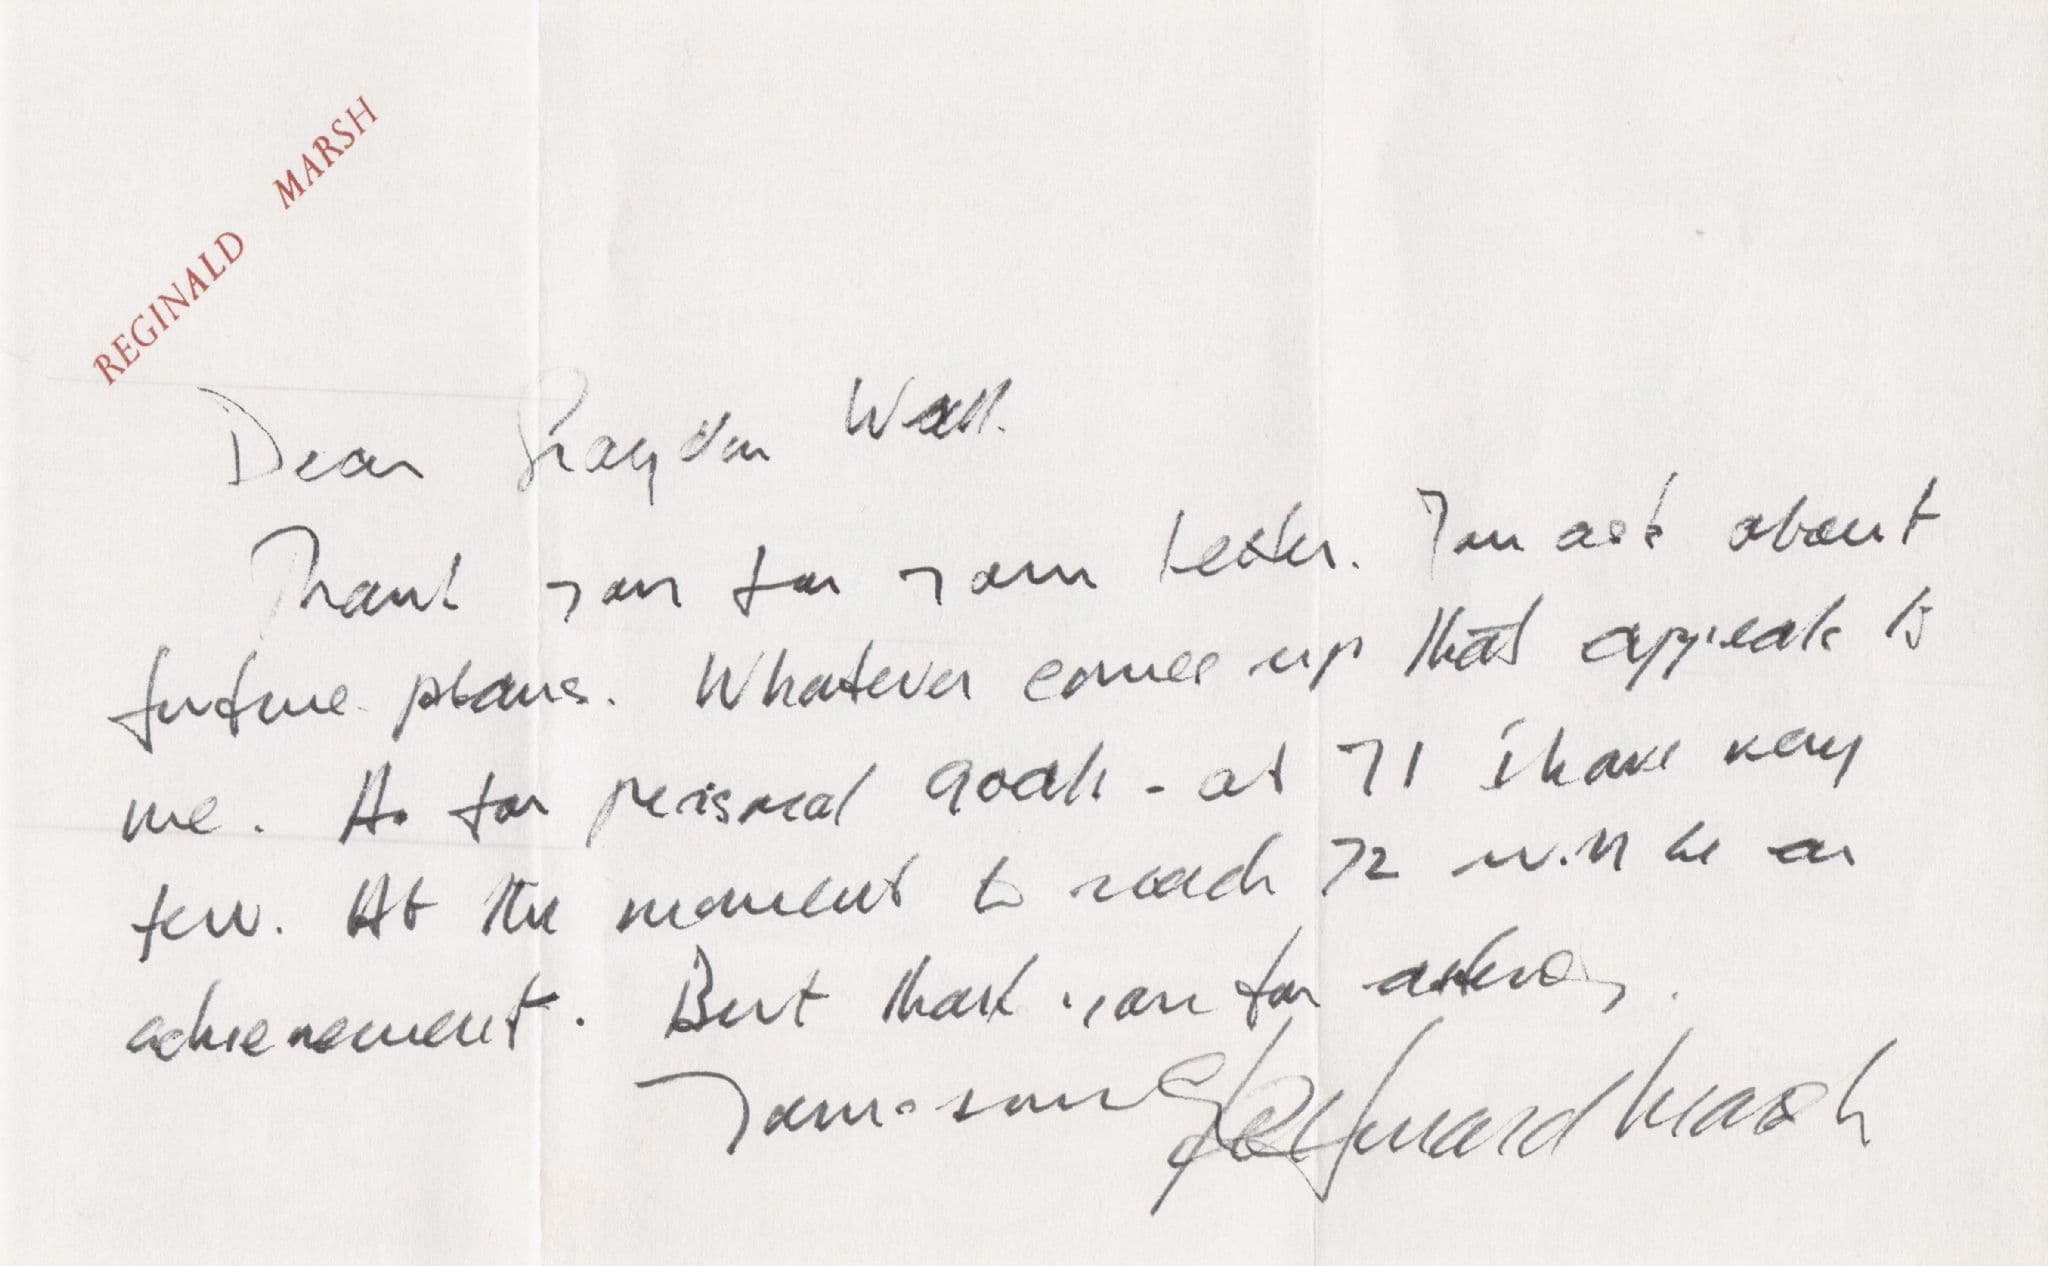 REGINALD MARSH
Dear Graydon Wall.
Thank you for your letter. You ask about
future plans. Whatever comes up that appeals to
me. As for personal goals - at 71 I have very
few. At the moment to reach 72 will be an
achievement. But thank you for asking.
Yours sincerely
Reginald Marsh